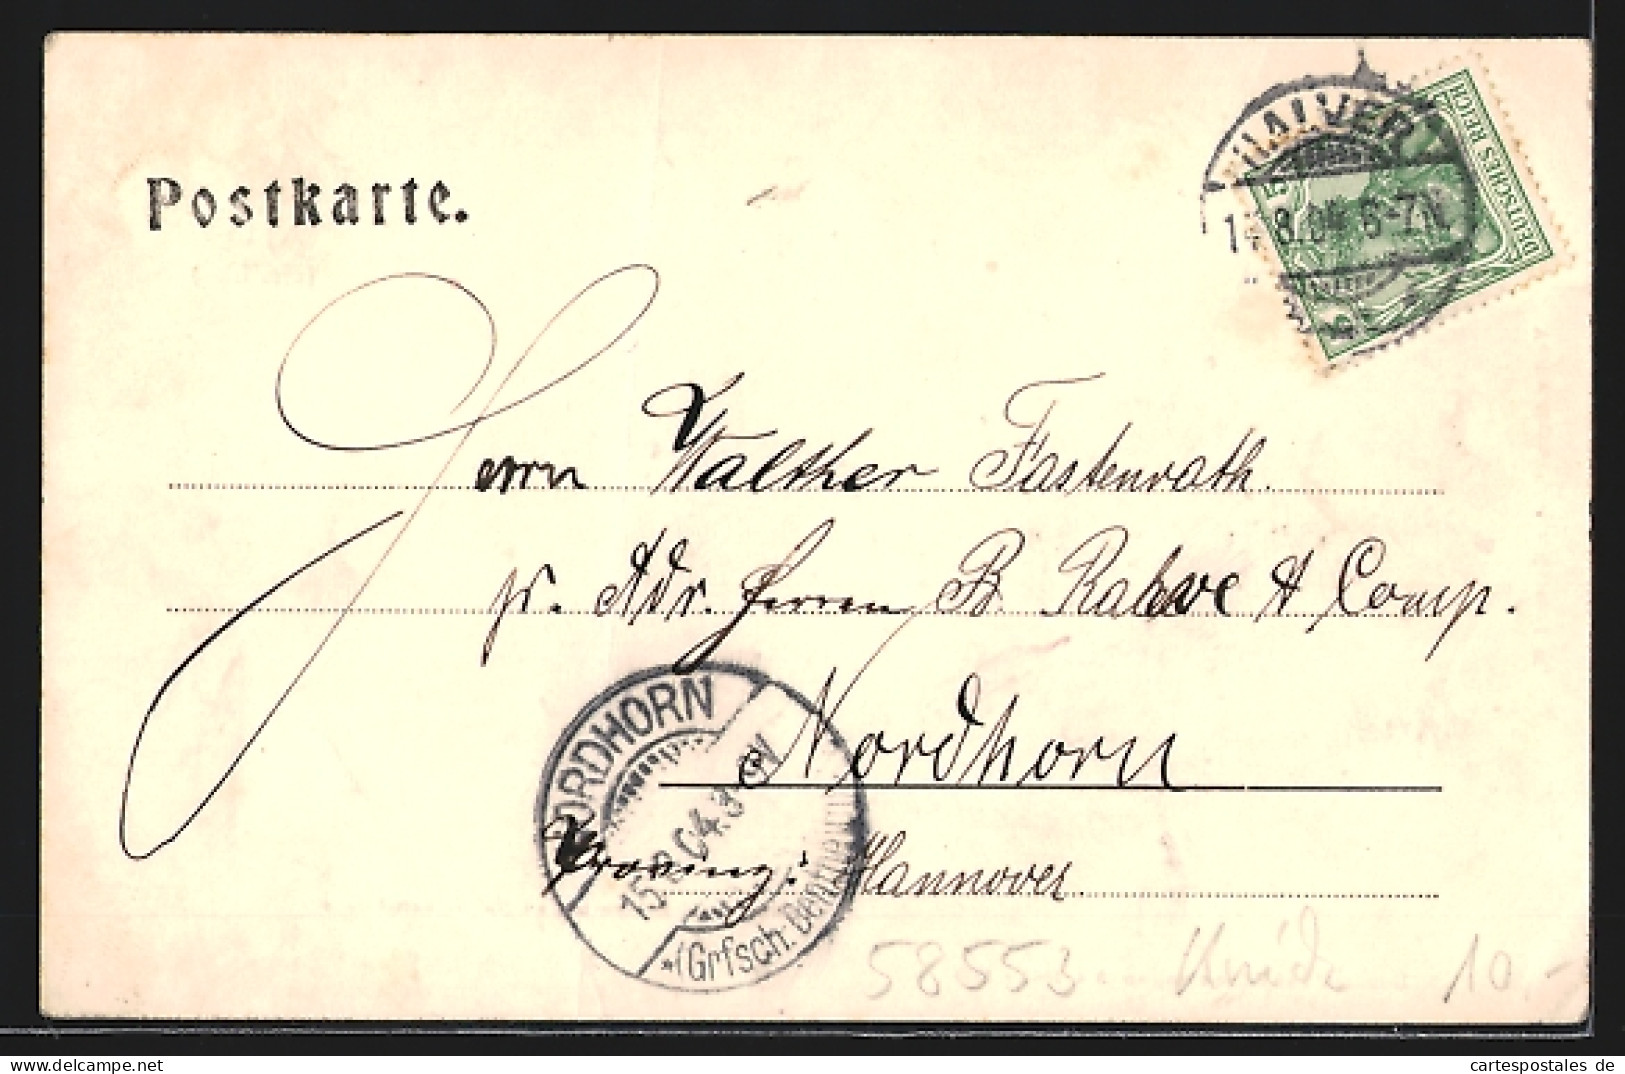 Postkarte.
HALVER
8.04 6-7N
DEUTSCHES REICH
5
Herrn Walther Fastenrath.
pr. Adr. Herren B. Rawe & Comp.
Nordhorn
Provinz: Hannover.
NORDHORN
15.8.04.
*(Grfsch. Bentheim)
58553 10.-
cartespostales de